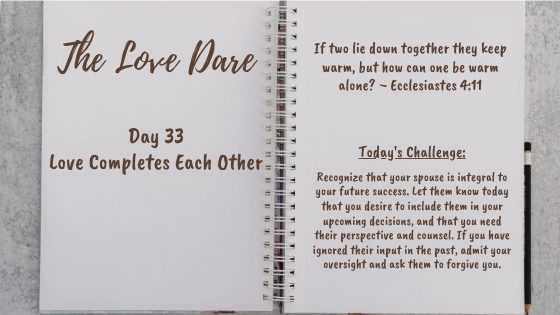 The Love Dare
Day 33
Love Completes Each Other
If two lie down together they keep
warm, but how can one be warm
alone? ~ Ecclesiastes 4:11
Today's Challenge:
Recognize that your spouse is integral to
your future success. Let them know today
that you desire to include them in your
upcoming decisions, and that you need
their perspective and counsel. If you have
ignored their input in the past, admit your
oversight and ask them to forgive you.